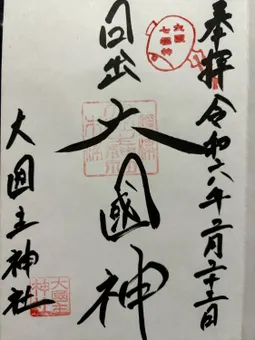 奉拝 令和六年二月二十二日
日出大國神
大国主神社
大國主神社